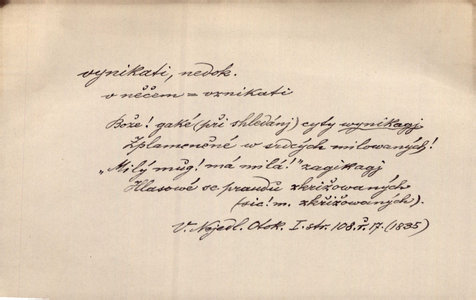 vynikati, nedok.
v něčem = vznikati
Bože! gaké (při shledánj) cyty wynikagj
Zplameněné w srdcych milowaných!
„Milý můg! má milá!" zagikagj
Hlasowé se praudů zkřižowaných
(sic! m. zkřížowaných).
V. Nejedl. Otok. I. str. 108. ř. 17. (1835)